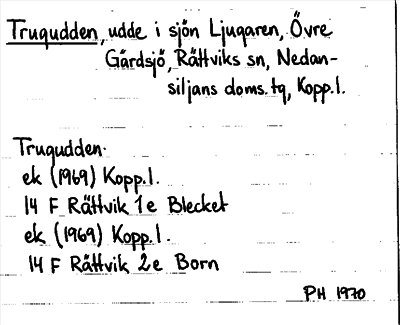 Truqudden, udde i sjön Ljugaren, Övre
Gärdsjö, Rättviks sn, Nedan-
siljans doms.tg, Kopp.l.
Truqudden.
ek (1969) Kopp.l.
14 F Rättvik 1e Blecket
ek (1969) Kopp.l.
14 F Rättvik 2e Born
PH 1970